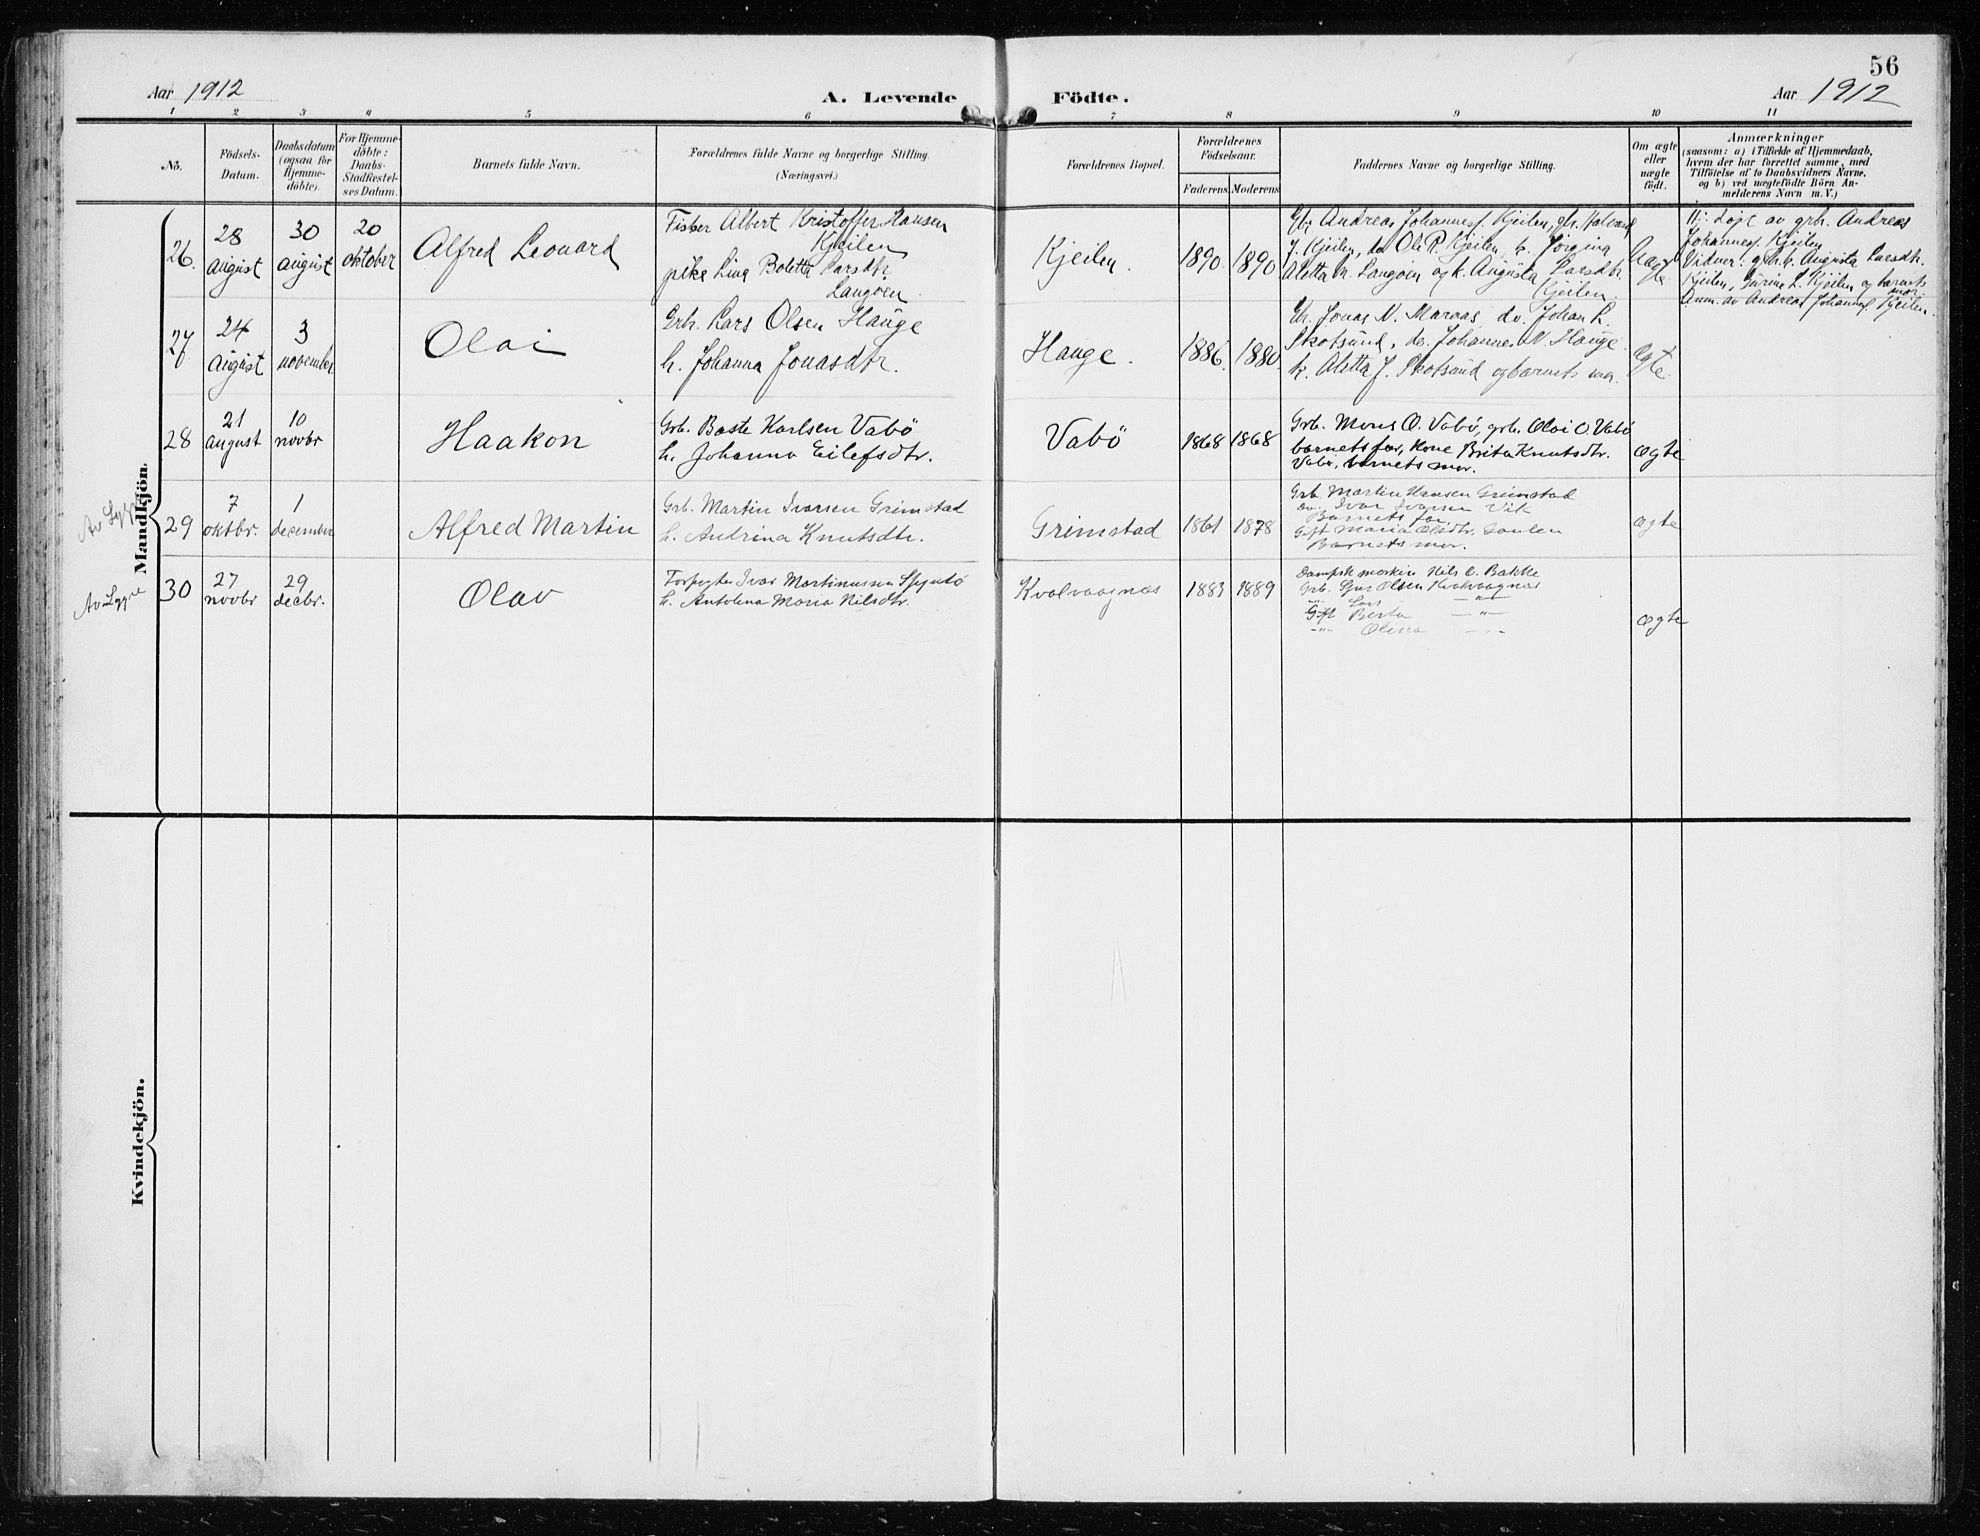 56
Aar 1912
A. Levende Födte.
Aar 1912
1 2 3 4 5 6 7 8 9 10 11
No.
Födsels-
Datum.
Daabsdatum
(ogsaa for
Hjemme-
döbte).
For Hjemme-
döbte:
Daabs-
Stadfæstel-
ses Datum.
Barnets fulde Navn.
Forældrenes fulde Navne og borgerlige Stilling.
(Næringsvei.)
Forældrenes Bopæl.
Forældrenes
Födselsaar.
Faderens. Moderens.
Faddernes Navne og borgerlige Stilling.
Om ægte
eller
uægte
födt.
Anmærkninger
(saasom: a) i Tilfælde af Hjemmedaab,
hvem der har forrettet samme, med
Tilföielse af to Daabsvidners Navne.
og b) ved uægtefödte Börn An-
melderens Navn m. V.)
Mandkjön.
26.
28
august
30
august
20
oktober
Alfred Leonard
Fisker Albert Kristoffer Hansen
Kjeilen
pike Lina Boletta Larsdtr.
Langöen.
Kjeilen.
1890. 1890
Gbr. Andreas Johannes. Kjeilen, gbr. Halvard
J. Kjeilen, Ole R. Kjeilen, Jörgina
Aletta Langöen og k. Augusta Larsdtr.
Kjeilen.
Uægte
Hj: döpt av grb. Andreas
Johannes. Kjeilen
Vidner: Augusta Larsdtr.
Kjeilen, L. Kjeilen og barnets
mor.
Anm. av Andreas Johannes. Kjeilen.
27
24
august
3
november
Olai
Grb. Lars Olsen Hauge
h. Johanna Jonasdtr.
Hauge.
1886. 1880.
Jonas N. Maraas, Johan L.
Skotsund, Johannes N. Hauge.
k. Aletta J. Skotsund og barnets mor.
Ægte.
28
21
august
10
novbr
Haakon
Grb. Baste Karlsen Vabö
h. Johanna Eilefsdtr.
Vabö
1868 1868
Grb. Mons O. Vabö, grb. Olai O. Vabö
barnets far, Kone Brita Knutsdtr.
Vabö, barnets mor.
ægte
29
7
oktbr.
1
december
Alfred Martin
Grb. Martin Ivarsen Grimstad
h. Andrina Knutsdtr.
Grimstad
1861 1878
Grb. Martin Hansen Grimstad
Do. Ivar Ivarsen Vik
Barnets far.
Gift Maria Olsdtr. Soulen
Barnets mor.
ægte
Av Lygre
30
27
novbr
29
decbr.
Olav
Forpagter Ivar Martinussen
h. Antolena Maria Nilsdtr.
Kvalvaagnæs
1883 1889
Nils O. Bakke
Grb. Olsen Kvalvaagnæs
-"- Lars -"-
Gift Berta -"-
-"- Olina -"-
ægte
Kvindekjön.